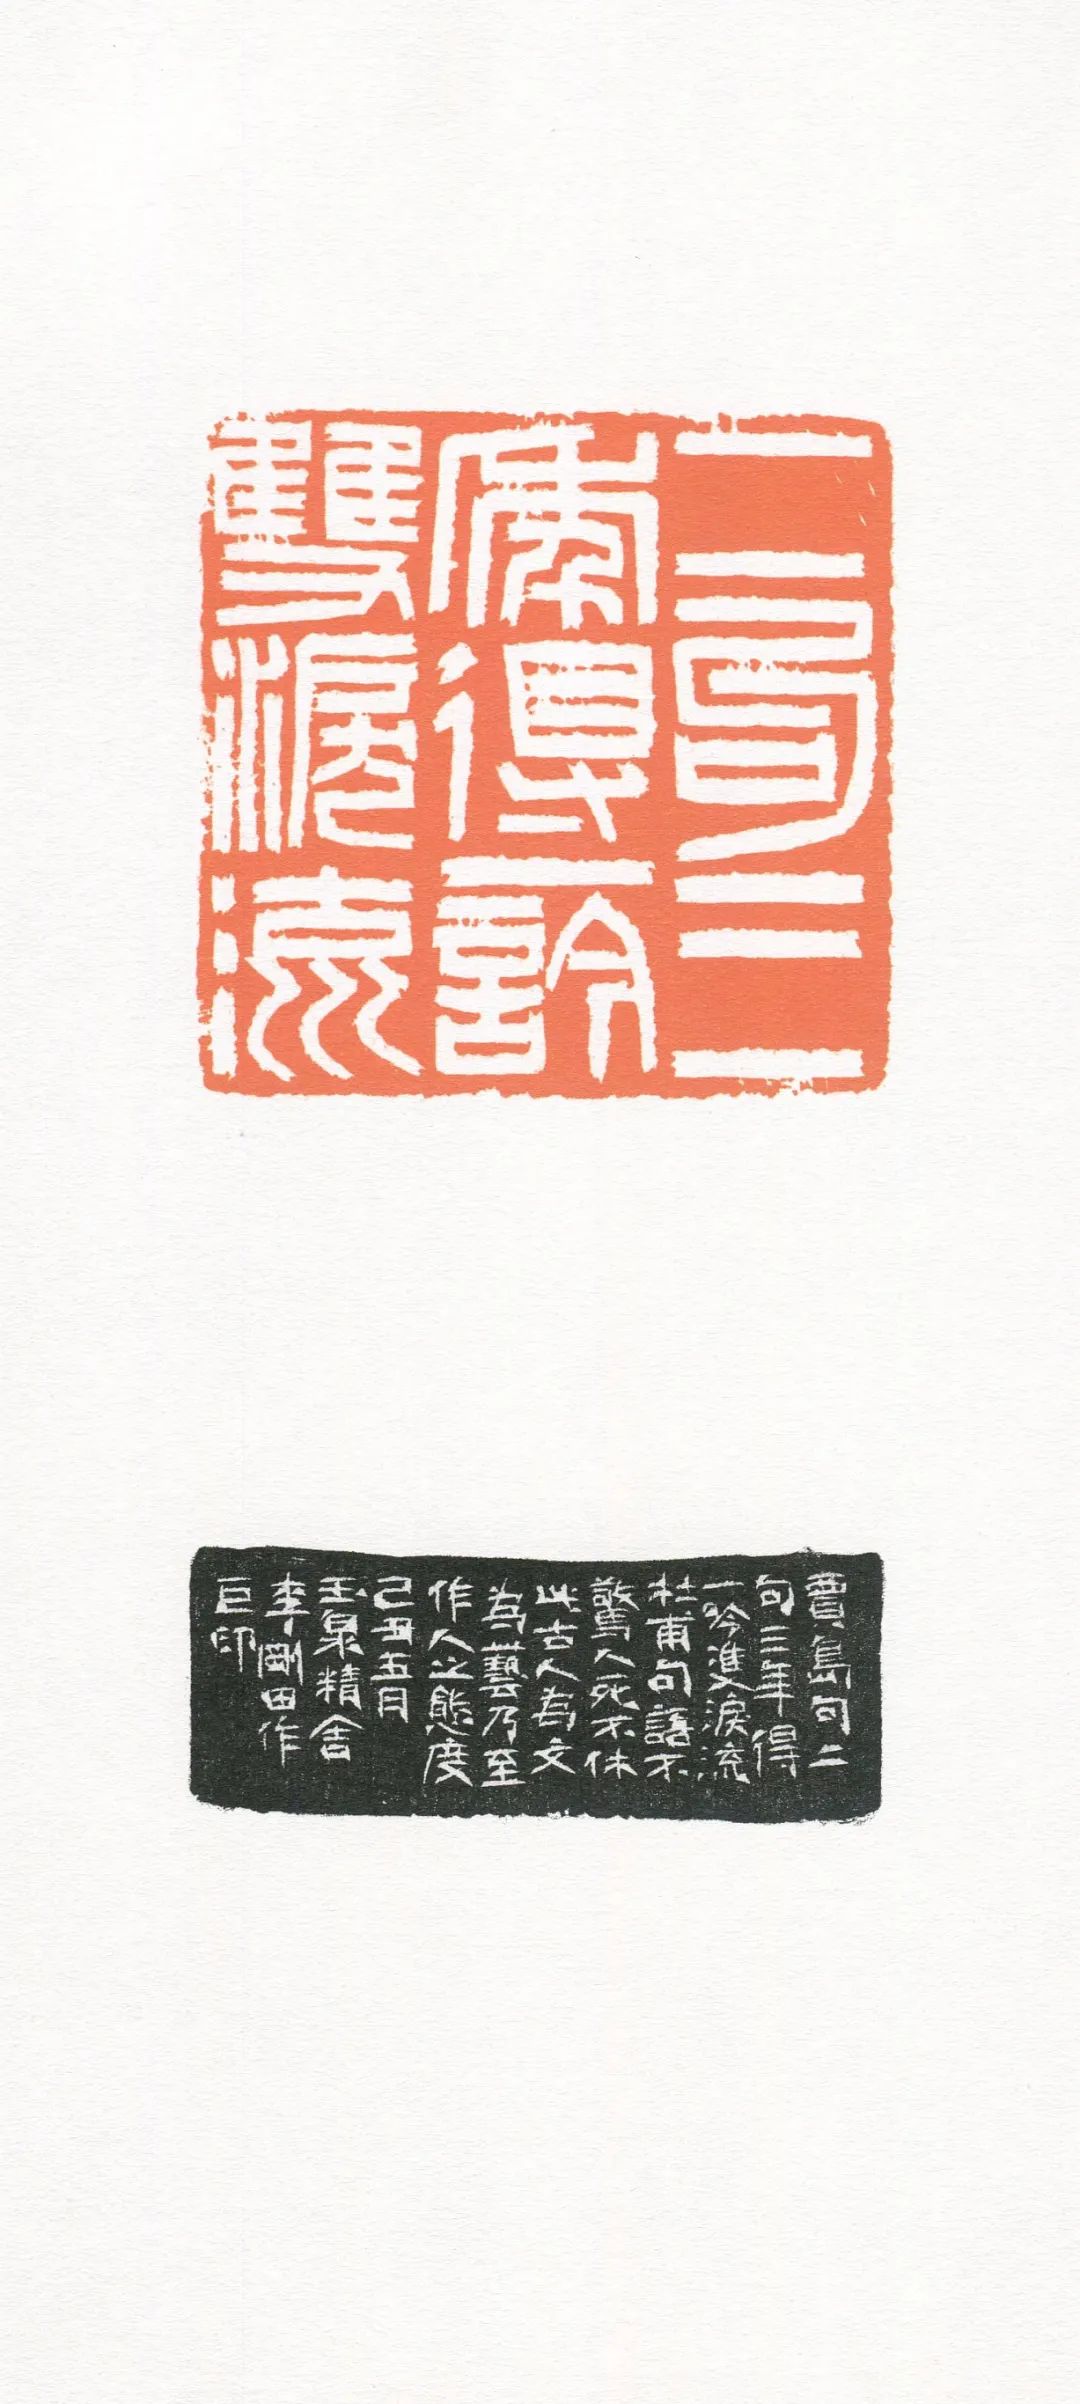 二句三
年得一吟
雙淚流
賈島句二
句三年得
一吟雙淚流
杜甫句語不
驚人死不休
此古人為文
為藝乃至
作人之態度
己丑五月
玉泉精舍
李剛田作
巨印